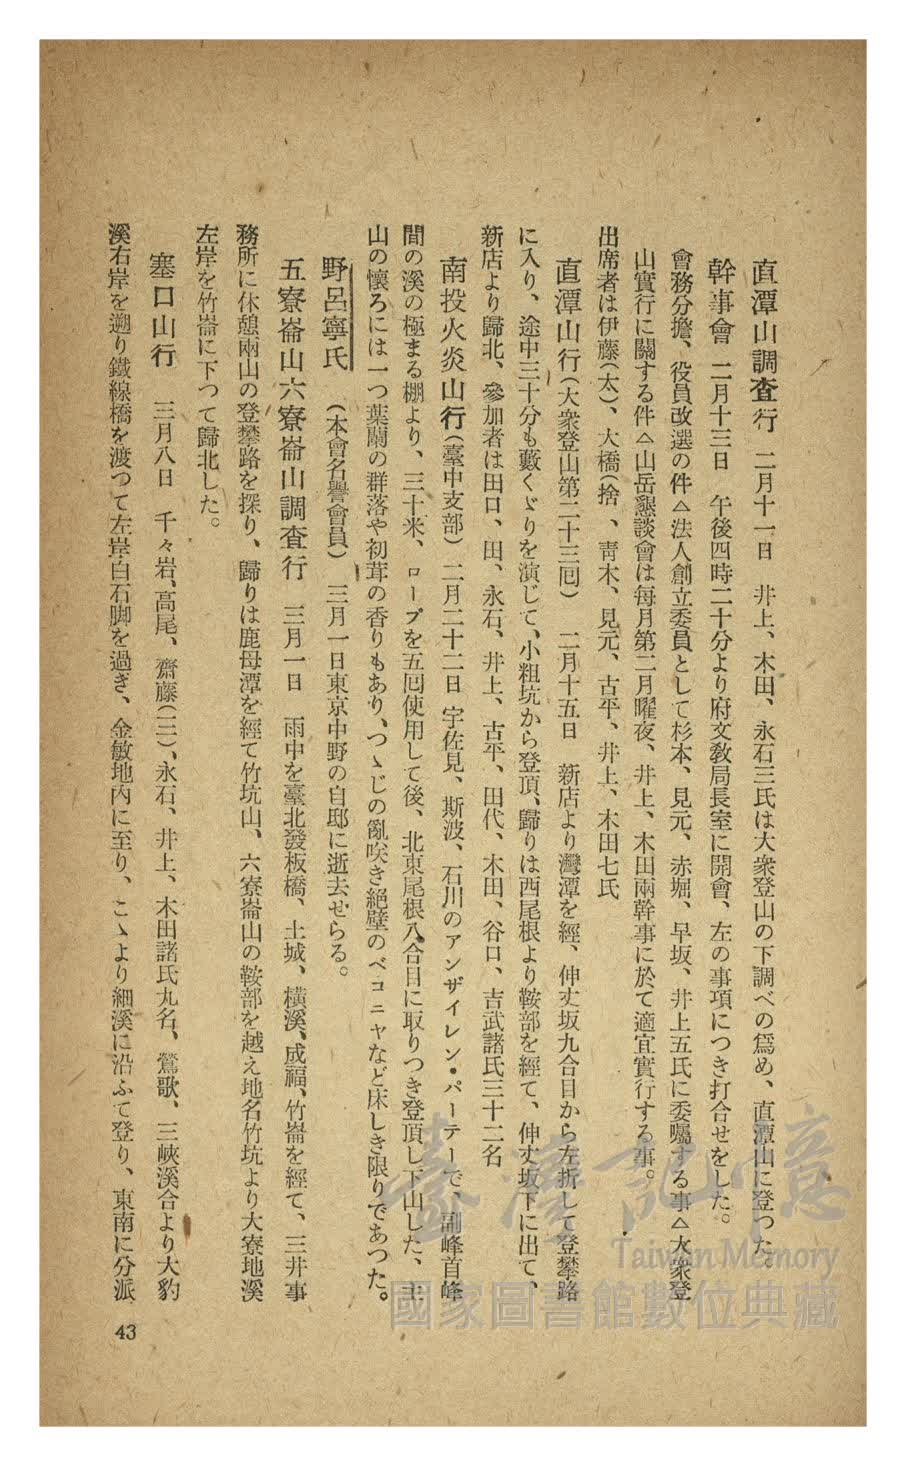 直潭山調査行　二月十一日　井上、木田、永石三氏は大衆登山の下調べの爲め、直潭山に登つた。
幹事會　二月十三日　午後四時二十分より府文敎局長室に開會、左の事項につき打合せをした。
會務分擔、役員改選の件△法人創立委員として杉本、見元、赤堀、早坂、井上五氏に委囑する事△大衆登
山實行に關する件△山岳懇談會は每月第二月曜夜、井上、木田兩幹事に於て適宜實行する事。
出席者は伊藤(太)、大橋(捨　、靑木、見元、古平、井上、木田七氏
直潭山行(大衆登山第二十三囘)　二月十五日　新店より灣潭を經、伸丈坂九合目から左折して登攀路
に入り、途中三十分も藪くゞりを演じて、小粗坑から登頂、歸りは西尾根より鞍部を經て、伸丈坂下に出て、
新店より歸北、參加者は田口、田、永石、井上、古平、田代、木田、谷口、吉武諸氏三十二名
南投火炎山行(臺中支部)　二月二十二日　宇佐見、斯波、石川のアンザイレン・パーテーで、副峰首峰
間の溪の極まる棚より、三十米、ロープを五囘使用して後、北東尾根八合目に取りつき登頂し下山した、主
山の懷ろには一つ葉蘭の群落や初茸の香りもあり、つゝじの亂咲き絕壁のベコニヤなど床しき限りであつた。
野呂寧氏　(本會名譽會員)　三月一日東京中野の自邸に逝去せらる。
五寮崙山六寮崙山調査行　三月一日　雨中を臺北發板橋、土城、橫溪、成福、竹崙を經て、三井事
務所に休憩兩山の登攀路を探り、歸りは鹿母潭を經て竹坑山、六寮崙山の鞍部を越え地名竹坑より大寮地溪
左岸を竹崙に下つて歸北した。
塞口山行　三月八日　千々岩、高尾、齋藤(三)、永石、井上、木田諸氏九名、鶯歌、三峽溪合より大豹
溪右岸を遡り鐵線橋を渡つて左岸白石脚を過ぎ、金敏地內に至り、こゝより細溪に沿ふて登り、東南に分派
43
臺灣記憶
Taiwan Memory
國家圖書館數位典藏